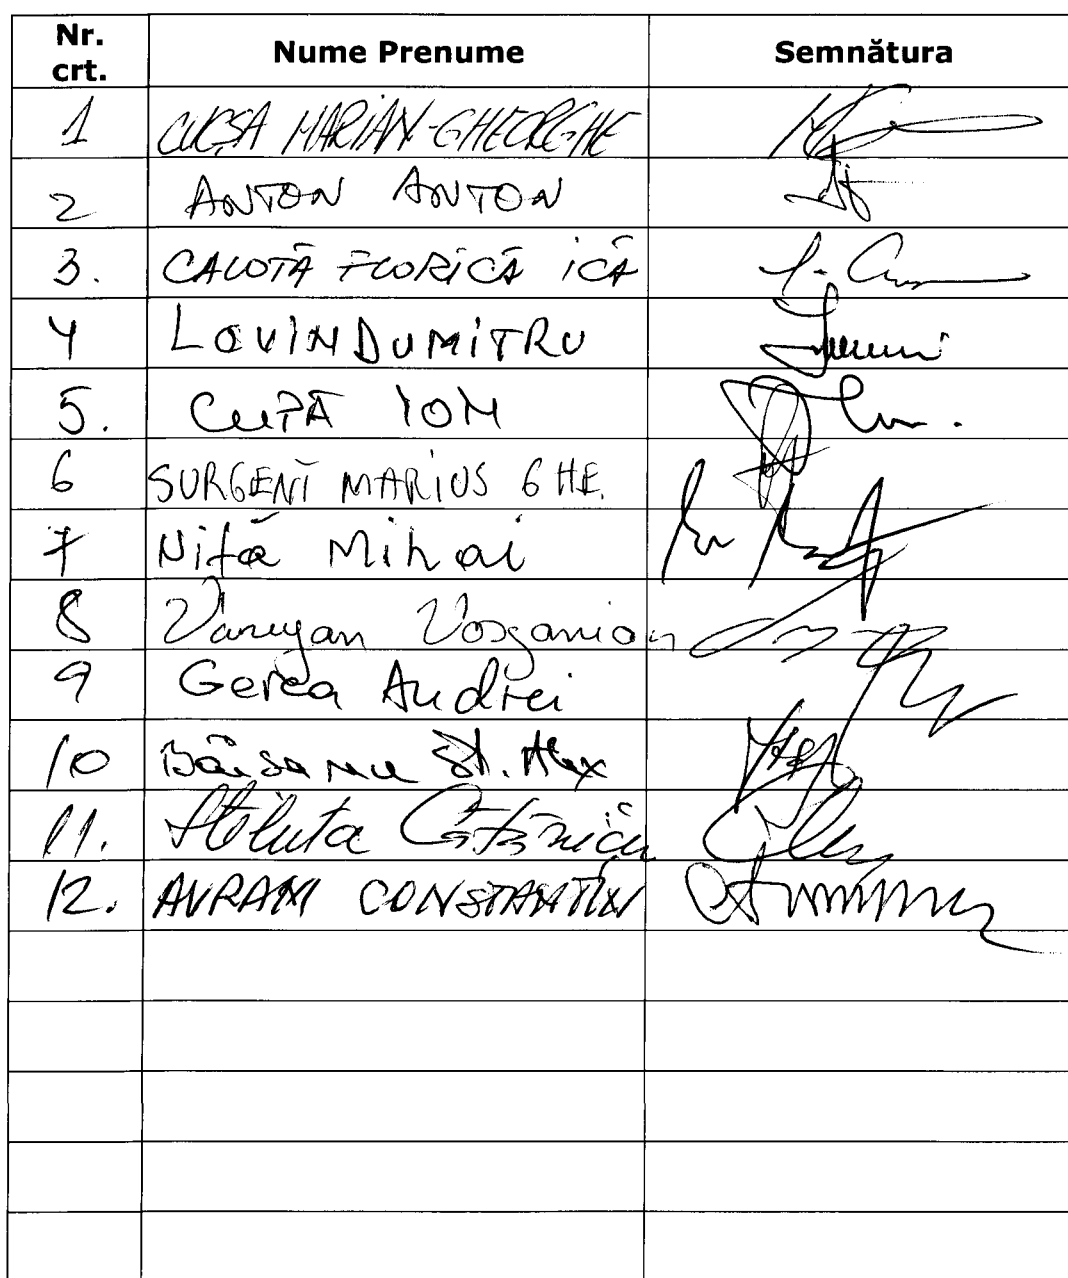 Nr. crt. Nume Prenume Semnătura
1 CUCȘA MARIAN-GHEORGHE
2 ANTON ANTON
3. CALOTĂ FLORICĂ ICĂ
4 LOVIN DUMITRU
5. CUPĂ ION
6 SURGENT MARIUS GHE.
7 Niță Mihai
8 Varujan Vosganian
9 Gerea Andrei
10 Băișanu Șt. Alex
11. Steluța Cătăniciu
12. AVRAM CONSTANTIN